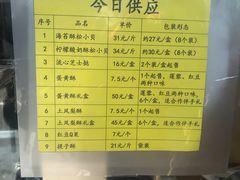 今日供应
序号 品名 单价 包装形态
1 海苔酥松小贝 31元/斤 约27元/盒（8个装）
2 柠檬酸奶酥松小贝 34元/斤 约30元/盒（8个装）
3 流心芝士挞 16元/盒 2个/盒起售
4 蛋黄酥 7.5元/个 1个起售，莲蓉、红豆两种口味
5 蛋黄酥礼盒 50元/盒 6个/盒，莲蓉、红豆两种口味
6 土凤梨酥 7.5元/个 1个起售
7 土凤梨酥礼盒 45元/盒 6个/盒，适合作伴手礼
8 红豆Q果 7元/个
9 提子酥 21元/斤 散装